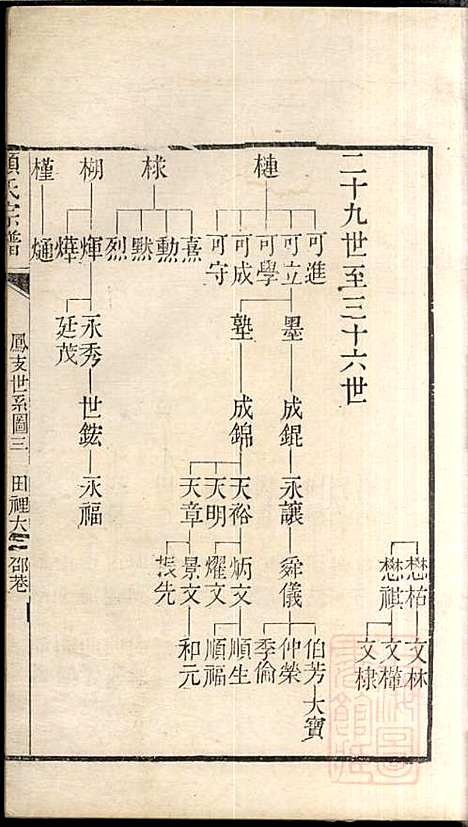 懋祐 文林
懋祺 文檉
文棣
二十九世至三十六世
槤 可進
可立
可學
可成
可守
墨 成錕 永讓 舜儀 伯芳 大寶
仲榮
季倫
塾 成錦 天裕 炳文 順生
天明 燿文 順福
天章 景文 和元
振先
梂 熹
勳
默
烈
棚 煇 永秀 世鋐 永福
燁 廷茂
槿 熥
顧氏宗譜
鳳支世系圖三 田裡大 邵巷